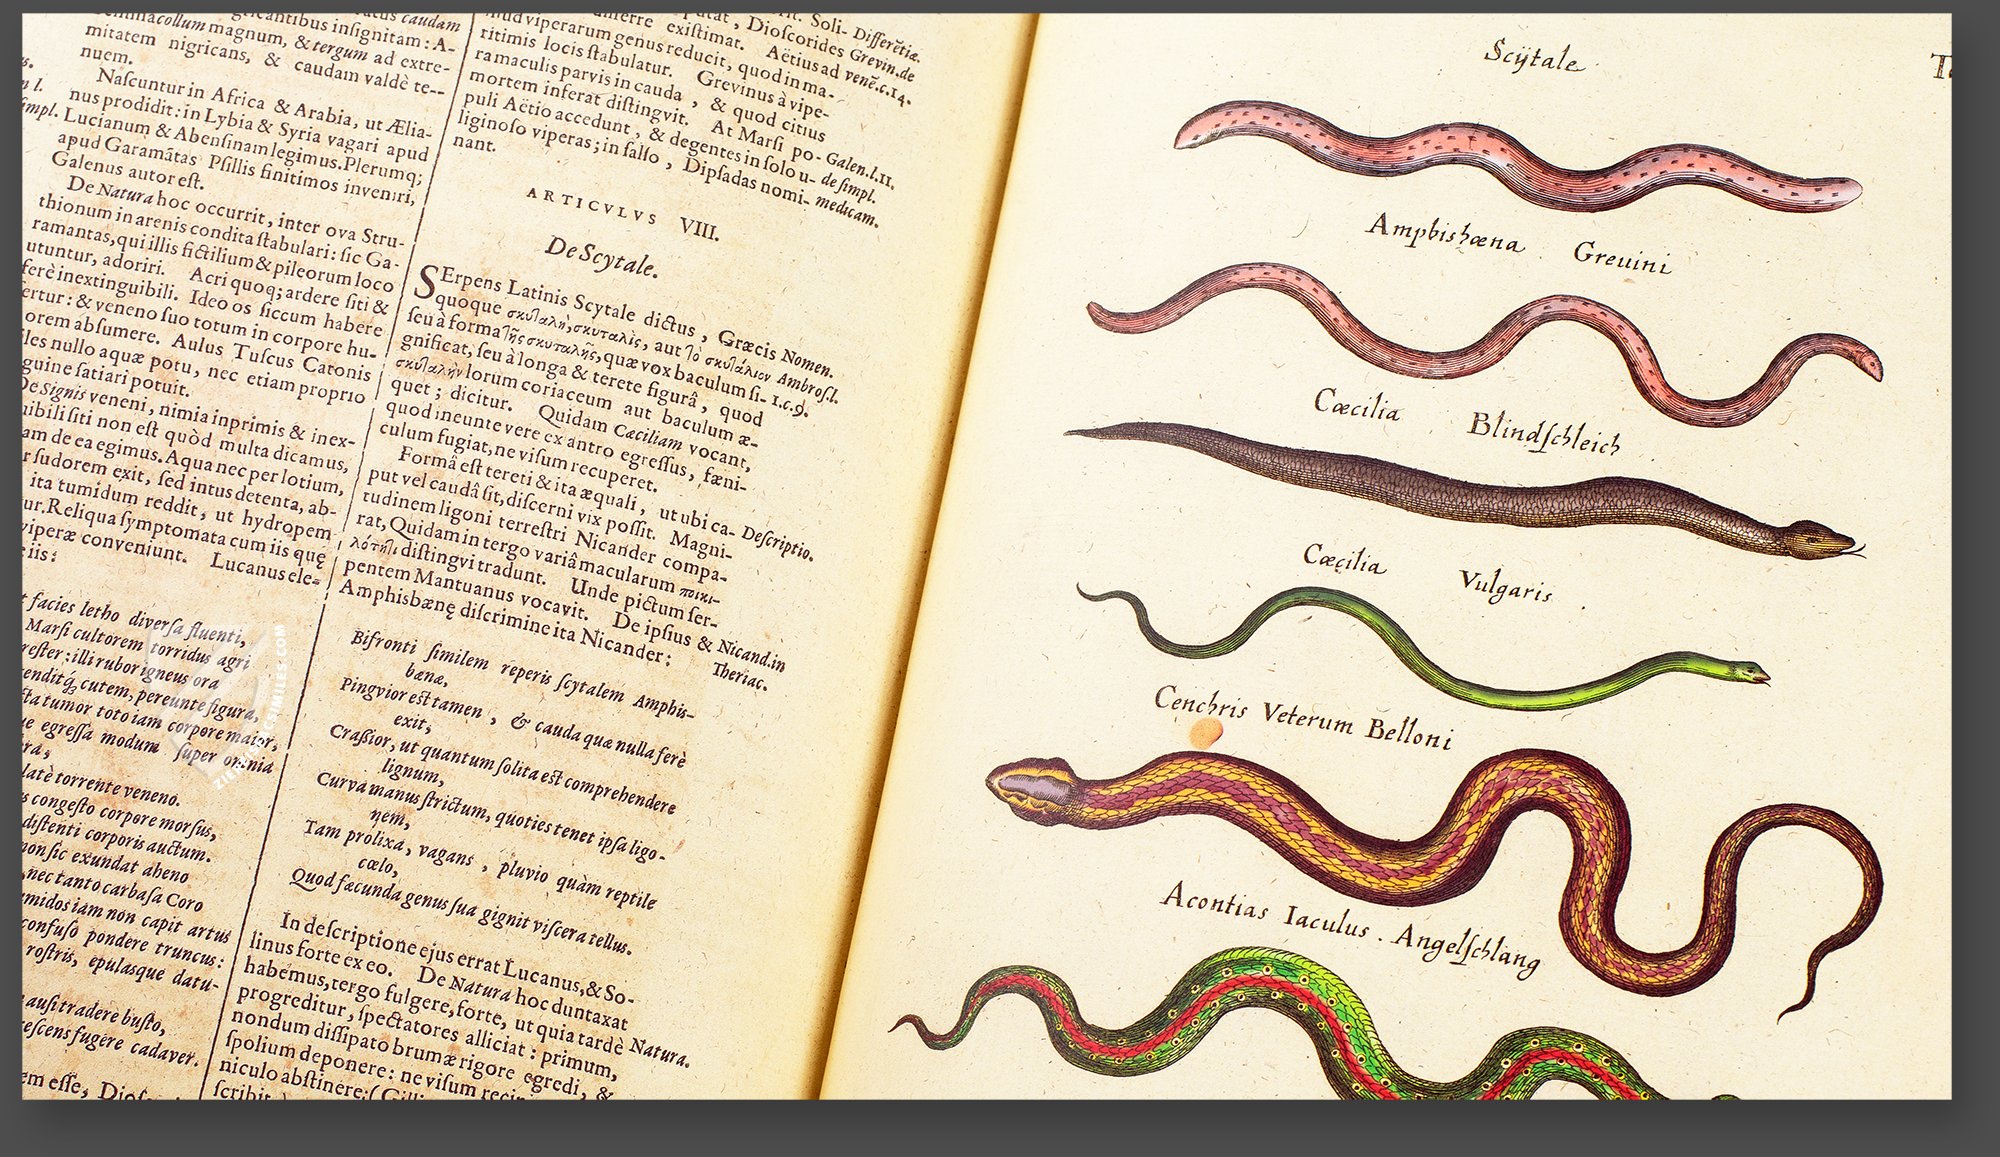 collum magnum, & tergum ad extre-
mitatem nigricans, & caudam valdè te-
nuem.
Naſcuntur in Africa & Arabia, ut Ælia-
nus prodidit: in Lybia & Syria vagari apud
Lucianum & Abenſinam legimus. Plerumq;
apud Garamãtas Pſillis finitimos inveniri,
Galenus autor eſt.
De Natura hoc occurrit, inter ova Stru-
thionum in arenis condita ſtabulari: ſic Ga-
ramantas, qui illis fictilium & pileorum loco
utuntur, adoriri. Acri quoq; ardere ſiti &
ferè inextinguibili. Ideo os ſiccum habere
fertur: & veneno ſuo totum in corpore hu-
orem abſumere. Aulus Tuſcus Catonis
les nullo aquæ potu, nec etiam proprio
guine ſatiari potuit.
De Signis veneni, nimia inprimis & inex-
uibili ſiti non eſt quòd multa dicamus,
am de ea egimus. Aqua nec per lotium,
r ſudorem exit, ſed intus detenta, ab-
ita tumidum reddit, ut hydropem
ur. Reliqua ſymptomata cum iis quę
viperæ conveniunt. Lucanus ele-
iis:
facies letho diverſa fluenti,
Marſi cultorem torridus agri
reſter: illi rubor igneus ora
enditq́; cutem, pereunte figura,
ta tumor toto iam corpore maior,
egreſſa modum ſuper omnia
latè torrente veneno.
congeſto corpore morſus,
diſtenti corporis auctum.
non ſic exundat aheno
nec tanto carbaſa Coro
midos iam non capit artus
confuſo pondere truncus:
roſtris, epulasque datu-
auſi tradere buſto,
eſcens fugêre cadaver.
em eſſe, Dioſ
exiſtimat. Aëtius ad
mud viperarum genus reducit, quod in ma-
ritimis locis ſtabulatur. Grevinus à vipe-
ra maculis parvis in cauda, & quod citius
mortem inferat diſtingvit. At Marſi po-
puli Aëtio accedunt, & degentes in ſolo u-
liginoſo viperas; in ſalſo, Dipſadas nomi-
nant.
Differẽtia.
Grevin. de
venẽ. c. 14.
Galen. l. 11.
de ſimpl.
medicam.
ARTICVLVS VIII.
De Scytale.
SErpens Latinis Scytale dictus, Græcis
quoque σκυταλὴ, σκυταλὶς, aut τὸ σκυτάλιον
ſeu à forma τῆς σκυταλῆς, quæ vox baculum ſi-
gnificat, ſeu à longa & terete figurâ, quod
σκυταλὴν lorum coriaceum aut baculum æ-
quet; dicitur. Quidam Cæciliam vocant,
quod ineunte vere ex antro egreſſus, fæni-
culum fugiat, ne viſum recuperet.
Formâ eſt tereti & ita æquali, ut ubi ca-
put vel caudâ ſit, diſcerni vix poſſit. Magni-
tudinem ligoni terreſtri Nicander compa-
rat, Quidam in tergo variâ macularum ποικι-
λότητι diſtingvi tradunt. Unde pictum ſer-
pentem Mantuanus vocavit. De ipſius &
Amphisbænę diſcrimine ita Nicander:
Nomen.
Ambroſ. l.
1. c. 9.
Deſcriptio.
Nicand. in
Theriac.
Bifronti ſimilem reperis ſcytalem Amphis-
bænæ,
Pingvior eſt tamen, & cauda quæ nulla ferè
exit;
Craſsior, ut quantum ſolita eſt comprehendere
lignum,
Curva manus ſtrictum, quoties tenet ipſa ligo-
nem,
Tam prolixa, vagans, pluvio quàm reptile
cœlo,
Quod fæcunda genus ſua gignit viſcera tellus.
In deſcriptione ejus errat Lucanus, & So-
linus forte ex eo. De Natura hoc duntaxat
habemus, tergo fulgere, forte, ut quia tardè
progreditur, ſpectatores alliciat: primum,
nondum diſſipato brumæ rigore egredi, &
ſpolium deponere: ne viſum
niculo abſtinere;
ſcribit
Natura.
Scÿtale
Amphisbœna Greuini
Cæcilia Blindſchleich
Cæcilia Vulgaris.
Cenchris Veterum Belloni
Acontias Iaculus. Angelſchlang